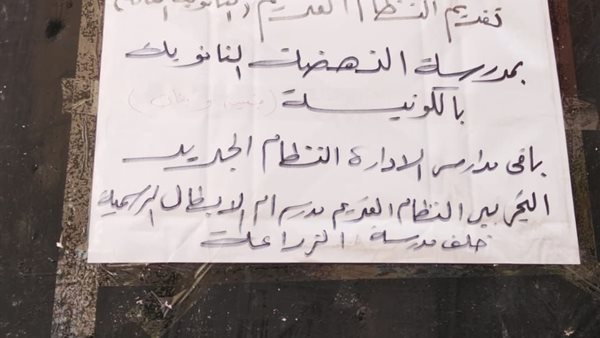 تقديم النظام القديم (الثانوية العامة)
بمدرسة النهضة الثانوية
بالكونيسة (بنين وبنات)
باقى مدارس الادارة النظام الجديد
التجريبى النظام القديم مدرسة ام الابطال الرسمية
خلف مدرسة الزراعة